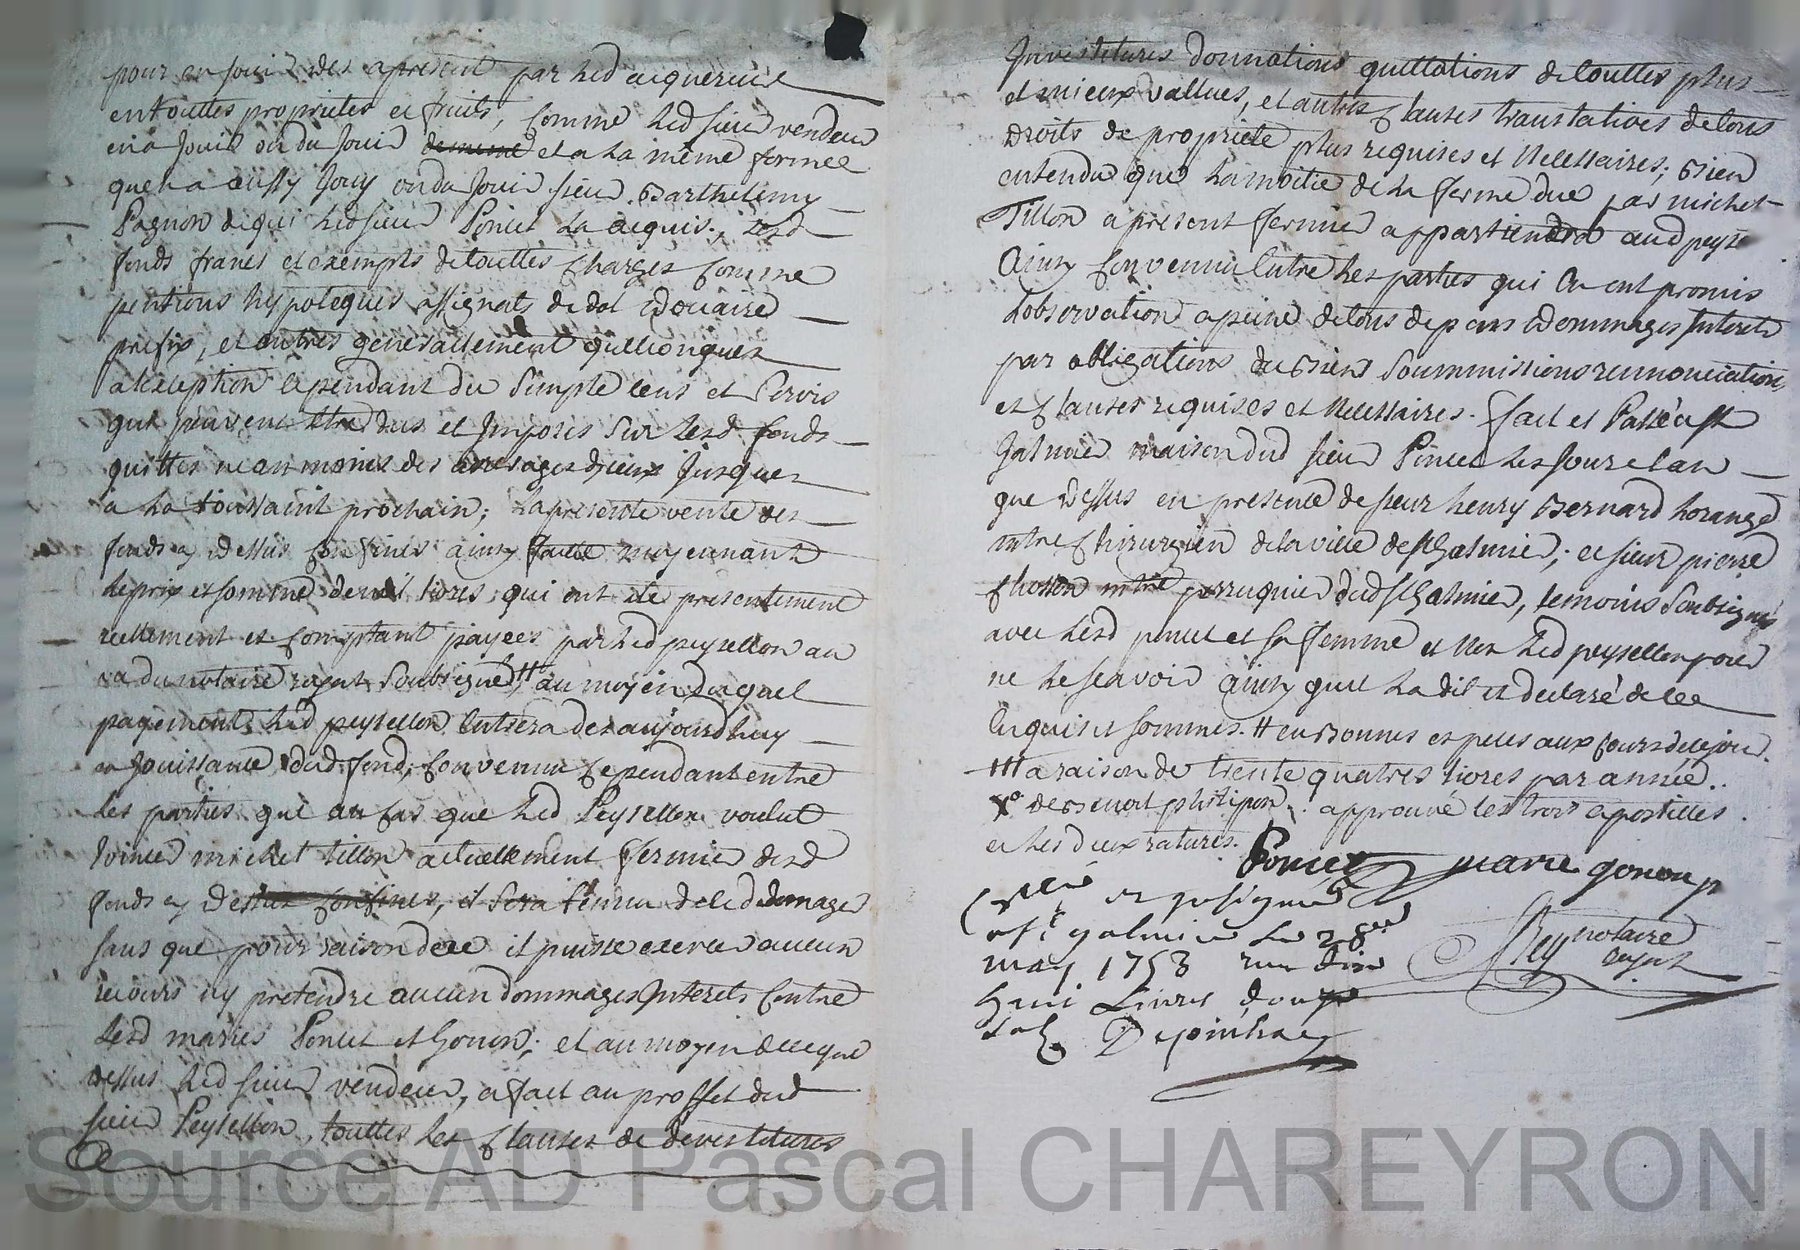 pour en jouir des apresent par led acquereur
en touttes proprietes et fruits, comme led sieur vendeur
en a jouis ou du jouir et a la même forme
que la aussy jouy ou du jouir sieur Barthelemy
Pagnon de qui led sieur Poncet la acquis, lesd
fonds francs et exempts de touttes charges comme
pentions hypoteques assignats de dot douaire
prefix, et autres generallement quelconques
a lexception cependant du simple cens et servis
qui peuvent être dus et imposés sur lesd fonds
quittes neanmoins des arrerages dyceux jusques
a la toussaint prochain; la presente vente des
fonds cy dessus confinés ainsy faitte moyennant
le prix et somme de mil livres qui ont ete presentement
reellement et comptant payees par led peysellon au
vu du notaire royal soubsigné # au moyen duquel
payement led peysellon entrera des aujourdhuy
en jouissance dud fond, convenu cependant entre
les parties que au cas que led Peysellon voulut
vincer michel tillon actuellement fermier desd
fonds cy dessus confines, il sera tenu de led domager
sans que pour raison de ce il puisse exercer aucun
recours ny pretendre aucun dommages interets contre
lesd maries Poncet et Gonon; et au moyen de ce que
dessus led sieur vendeur, a fait au proffet dud
sieur Peysellon, touttes les clauses de devestitures
Investitures donnations quittations de touttes plus
et mieux vallues, et autres clauses translatives de tous
droits de propriete plus requises et necessaires; bien
entendu que la moitié de la ferme due par michel
Tillon a present fermier appartiendra aud peys
Ainsy convenu entre les parties qui en ont promis
lobservation a peine de tous depens dommages interets
par obligations de biens soummissions renonciation
et clauses requises et necessaires. fait et Passé a st
Galmier maison dud sieur Poncet les jour et an
que dessus en presence de sieur henry Bernard
mtre chirurgien de la ville de st Galmier; et sieur pierre
mtre perruquier dud st Galmier, temoins soubsignés
avec lesd poncet et sa femme et non led peysellon pour
ne le scavoir ainsy quil la dit et declaré de ce
enquis et sommés. # en bonnes especes aux cours de ce jour.
### a raison de trente quatres livres par année..
X° de benoit philipon. approuvé les trois apostilles
et les deux ratures.
Poncet marie gonon
Notaire
Royal
st galmier le 28
may 1753
huit Livres douze
sols Depoinhac
Source AD Pascal CHAREYRON